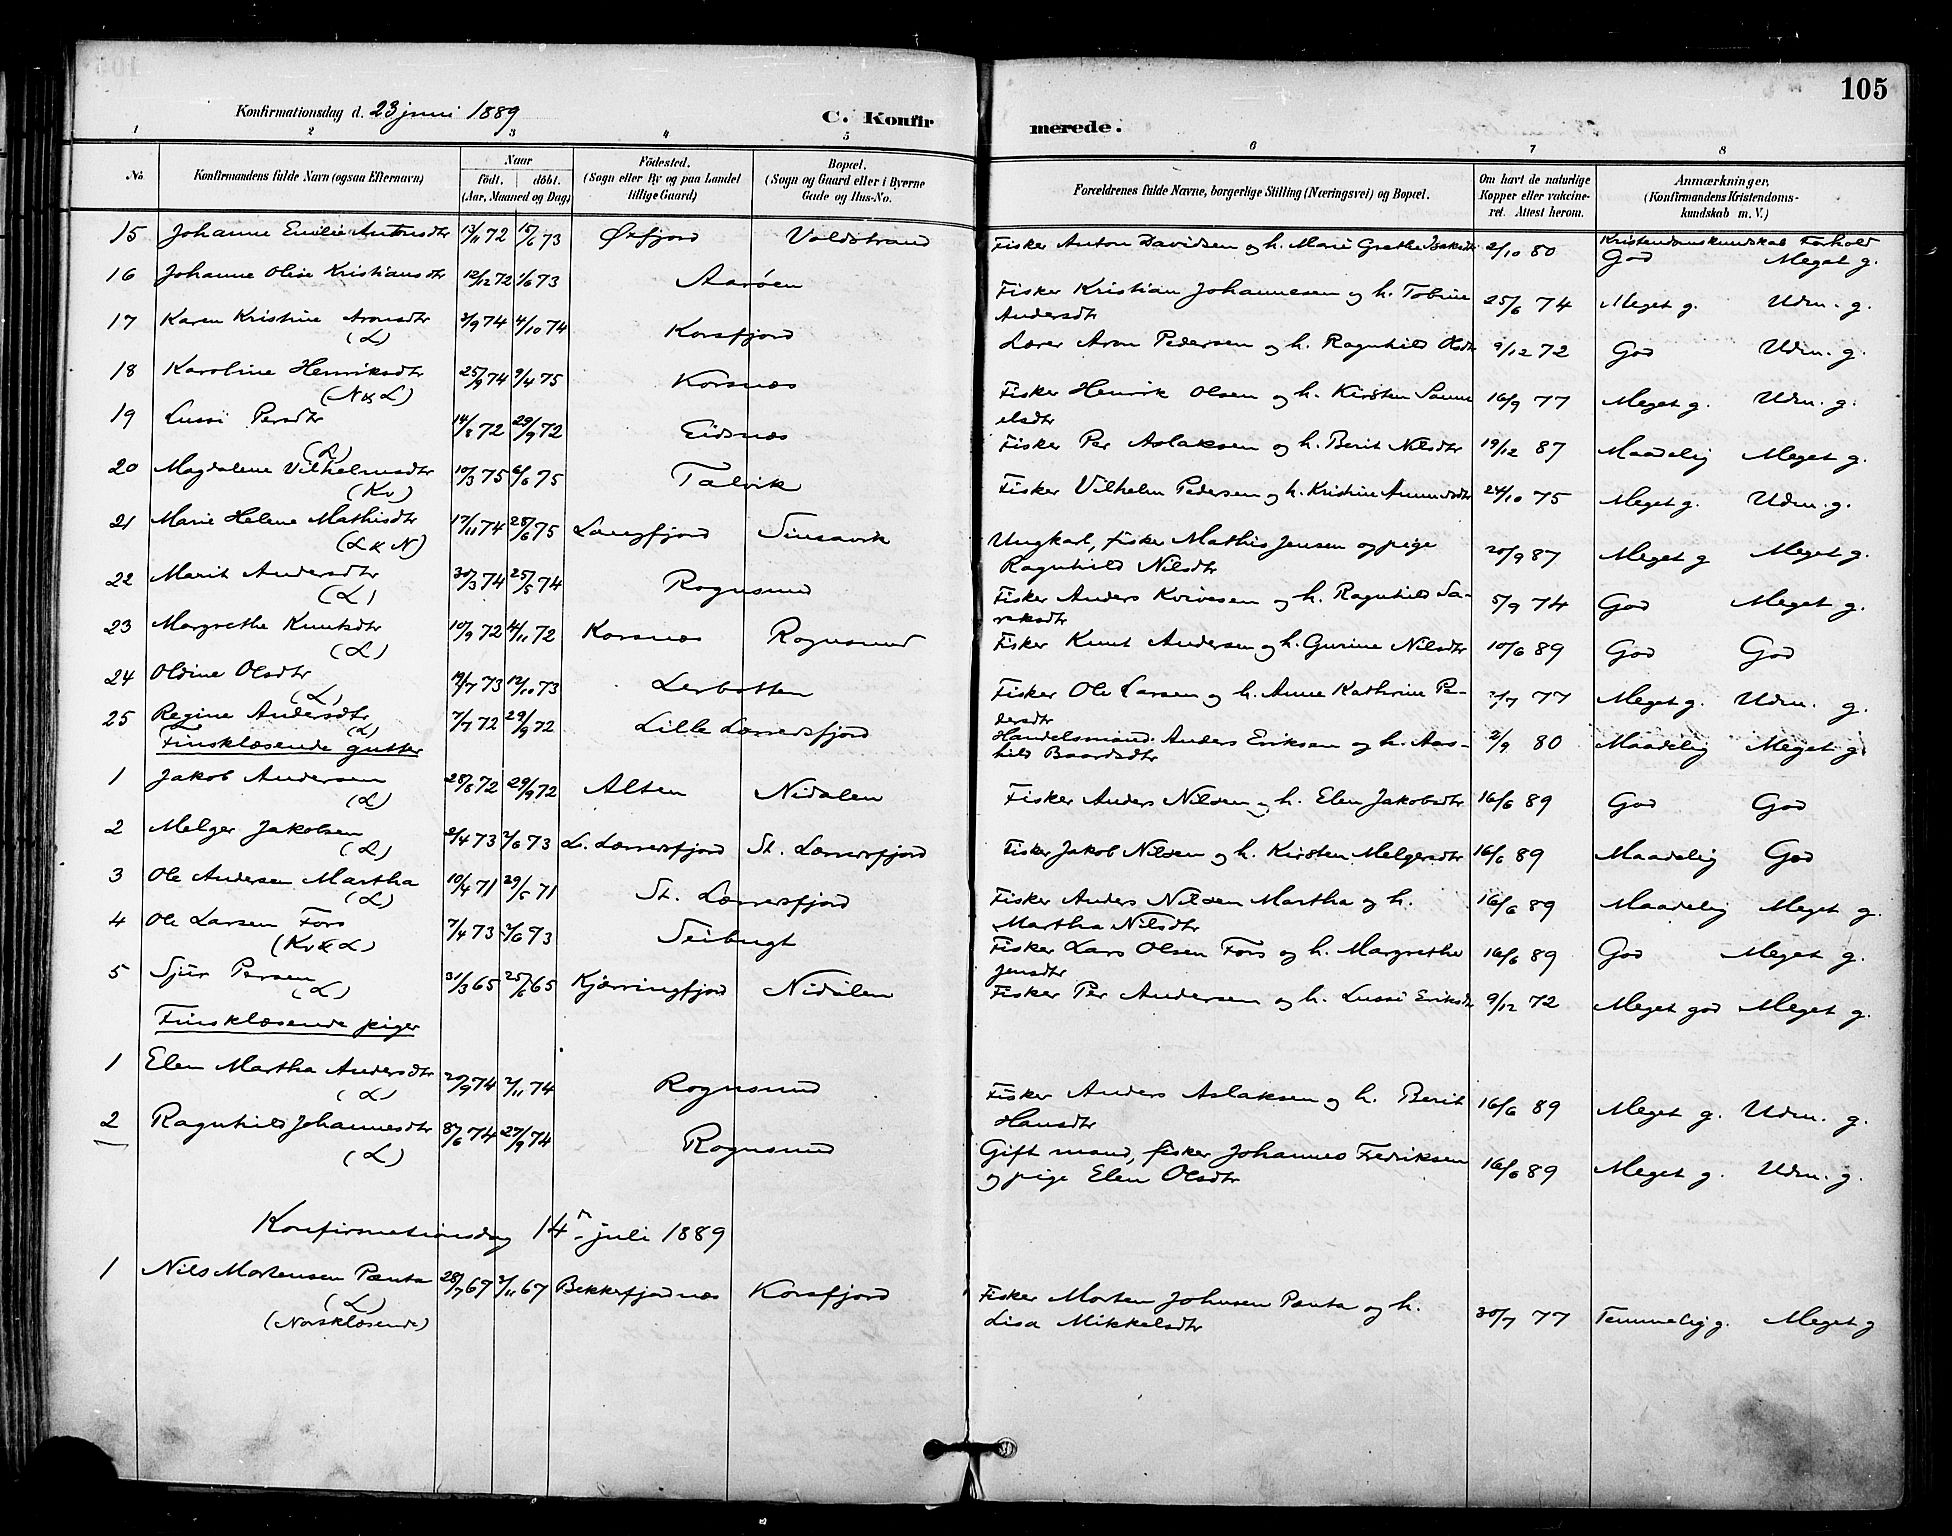 105
Konfirmationsdag d. 23 juni 1889
C. Konfirmerede.
1 2 3 4 5 6 7 8
No
Konfirmandens fulde Navn (ogsaa Efternavn)
Naar
födt. döbt.
(Aar, Maaned og Dag)
Födested.
(Sogn eller By og paa Landet
tillige Gaard)
Bopæl.
(Sogn og Gaard eller i Byerne
Gade og Hus-No.
Forældrenes fulde Navne, borgerlige Stilling (Næringsvei) og Bopæl.
Om havt de naturlige
Kopper eller vakcine-
ret. Attest herom.
Anmærkninger.
(Konfirmandens Kristendoms-
kundskab m. V.)
Kristendomskundskab Forhold
15 Johanne Emilie Antonsdtr 13/11 72 15/6 73 Øxfjord Voldstrand Fisker Anton Davidsen og h. Marie Grethe Isaksdtr 2/10 80 God Meget g.
16 Johanne Oline Kristiansdtr 12/12 72 1/6 73 Aarøen Fisker Kristian Johannesen og h. Tobine
Andersdtr 25/6 74 Meget g. Udm. g.
17 Karen Kristine Aronsdtr 3/9 74 4/10 74 Korsfjord Lærer Aron Pedersen og h. Ragnhild Olsdtr 9/12 72 God Udm. g.
(L)
18 Karoline Henriksdtr 25/9 74 9/4 75 Korsnæs Fisker Henrik Olsen og h. Kirsten Samu
elsdtr 16/9 77 Meget g. Udm. g.
(N & L)
19 Lussi Persdtr 14/8 72 29/9 72 Eidsnæs Fisker Per Aslaksen og h. Berit Nilsdtr 19/12 87 Maadelig Meget g.
(L)
20 Magdalene Vilhelmsdtr 10/3 75 6/6 75 Talvik Fisker Vilhelm Pedersen og h. Kristine Amundsdtr 24/10 75 Meget g. Udm. g.
(Kv)
21 Marie Helene Mathisdtr 17/11 74 28/6 75 Langfjord Tinsavik Ungkarl, fisker Mathis Jensen og pige
Ragnhild Nilsdtr 20/9 87 Meget g Meget g.
(L & N)
22 Marit Andersdtr 30/3 74 25/5 74 Rognsund Fisker Anders Kvivesen og h. Ragnhild Sa-
raksdtr 5/9 74 God Meget g.
(L)
23 Margrethe Knutsdtr 10/9 72 4/11 72 Korsnæs Rognsund Fisker Knut Andersen og h. Gurine Nilsdtr 10/6 89 God God
(L)
24 Oldine Olsdtr 19/7 73 12/10 73 Lerbotten Fisker Ole Larsen og h. Anne Kathrine Pe-
dersdtr 2/7 77 Meget g. Udm. g.
(L)
25 Regine Andersdtr 7/7 72 29/9 72 Lille Lerresfjord Handelsmand Anders Eriksen og h. Aas-
hild Baardsdtr 2/9 80 Maadelig Meget g.
(L)
Finsklæsende gutter
1 Jakob Andersen 28/8 72 29/9 72 Alten Nidalen Fisker Anders Nilsen og h. Elen Jakobsdtr 16/6 89 God God
(L)
2 Melger Jakobsen 2/4 73 2/6 73 L. Lerresfjord St. Lerresfjord Fisker Jakob Nilsen og h. Kirsten Melgersdtr 16/6 89 Maadelig God
(L)
3 Ole Andersen Martha 10/4 71 29/5 71 St. Lerresfjord Fisker Anders Nilsen Martha og h.
Martha Nilsdtr 16/6 89 Maadelig Meget g.
(L)
4 Ole Larsen Fors 7/4 73 2/6 73 Seibugt Fisker Lars Olsen Fors og h. Margrethe
Jensdtr 16/6 89 God Meget g.
(Kv & L)
5 Sjur Persen 31/3 65 25/6 65 Kjærringfjord Nidalen Fisker Per Andersen og h. Lussi Eriksdtr 9/12 72 Meget god Meget g.
(L)
Finsklæsende piger
1 Elen Martha Andersdtr 20/9 74 2/11 74 Rognsund Fisker Anders Aslaksen og h. Berit
Hansdtr 16/6 89 Meget g. Udm. g.
(L)
2 Ragnhild Johannesdtr 8/6 74 27/9 74 Rognsund Gift mand, fisker Johannes Fredriksen
og pige Elen Olsdtr 16/6 89 Meget g. Udm. g.
(L)
Konfirmationsdag 14 juli 1889
1 Nils Mortensen Pænta 28/7 67 3/11 67 Bekkefjordnæs Korsfjord Fisker Morten Johnsen Pænta og h.
Lisa Mikkelsdtr 30/7 77 Temmelig g. Meget g
(L)
(Norsklæsende)